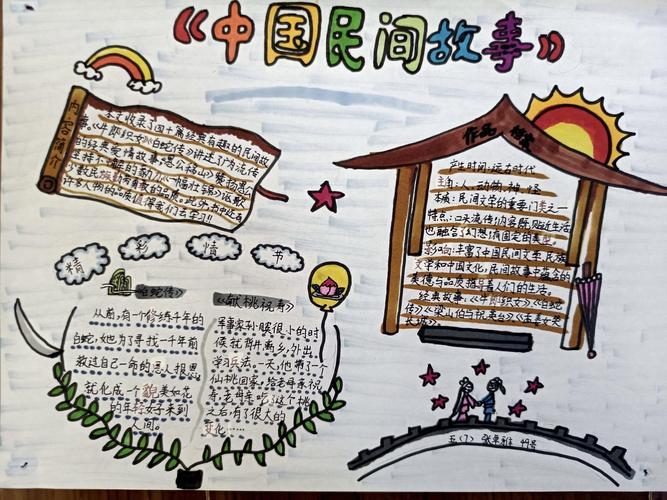 《中国民间故事》
内容简介
本文收录了国十篇经典有趣的民间故
事。《牛郎织女》《白蛇传》讲述了广为流传
的经典爱情故事,愚公移山
数民族勤劳勇敢的品质。此外书中还有
许多人物的品质值得我们去学习!!
作品
产生时间:远古时代
主角:人、动物、神、怪
本质:民间文学的重要门类之一
特点:口头流传;内容既贴近生活
也融合了幻想;有固定的类型。
影响:丰富了中国民间文学、民族
文学和中国文化,民间故事中蕴含的
美德与品质指引着人们的生活。
经典故事:《牛郎织女》《白蛇
传》《梁山伯与祝英台》《孟姜女哭
长城》
精彩情节
白蛇传》
从前,有一个修炼千年的
白蛇,她为了寻找一千年前
放过自己一命的恩人报恩,
就化成一个貌美如花
的年轻女子来到
人间。
《献桃祝寿》
军事家孙膑很小的时
候就背井离乡,外出
学习兵法。一天,他带了一个
仙桃回家,给老母亲祝
寿,老母亲吃了这个桃
之后,有了很大的
变化……
五(7) 张